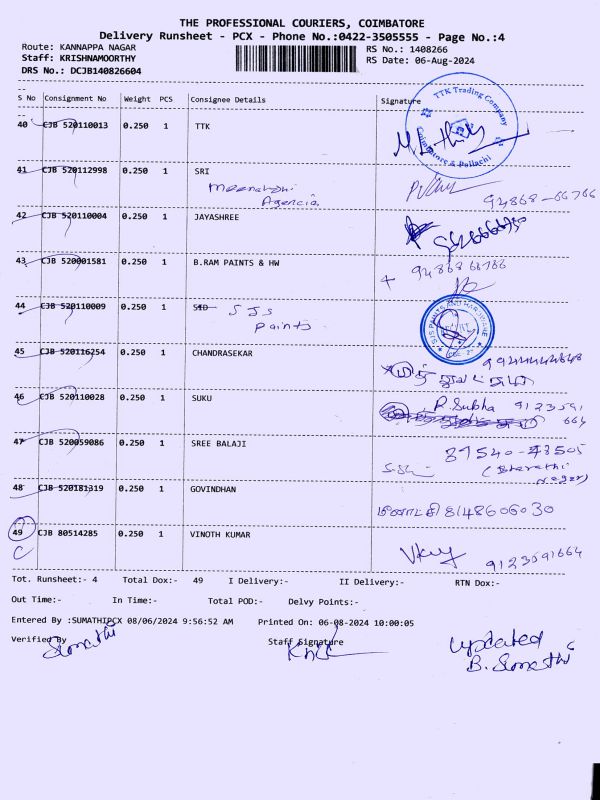 THE PROFESSIONAL COURIERS, COIMBATORE
Delivery Runsheet - PCX - Phone No.:0422-3505555 - Page No.:4
Route: KANNAPPA NAGAR RS No.: 1408266
Staff: KRISHNAMOORTHY RS Date: 06-Aug-2024
DRS No.: DCJB140826604
S No Consignment No Weight PCS Consignee Details Signature
TTK Trading Company
Coimbatore & Pollachi
40 CJB 520110013 0.250 1 TTK
41 CJB 520112998 0.250 1 SRI
Meenakshi
Agencies
94868-66766
42 CJB 520110004 0.250 1 JAYASHREE
43 CJB 520001581 0.250 1 B.RAM PAINTS & HW 94868 66766
44 CJB 520110009 0.250 1 SID SJS
Paints
SJS PAINTS AND HARDWARE
45 CJB 520116254 0.250 1 CHANDRASEKAR
46 CJB 520110028 0.250 1 SUKU R. Subha 9123591
664
47 CJB 520059086 0.250 1 SREE BALAJI 87540-48505
(Bharathi
Nager)
48 CJB 520181319 0.250 1 GOVINDHAN மீனாட்சி 8148606030
49 CJB 80514285 0.250 1 VINOTH KUMAR 9123591664
C
Tot. Runsheet:- 4 Total Dox:- 49 I Delivery:- II Delivery:- RTN Dox:-
Out Time:- In Time:- Total POD:- Delvy Points:-
Entered By :SUMATHIPCX 08/06/2024 9:56:52 AM Printed On: 06-08-2024 10:00:05
Verified By Staff Signature
Sumathi
updated
B. Sumathi